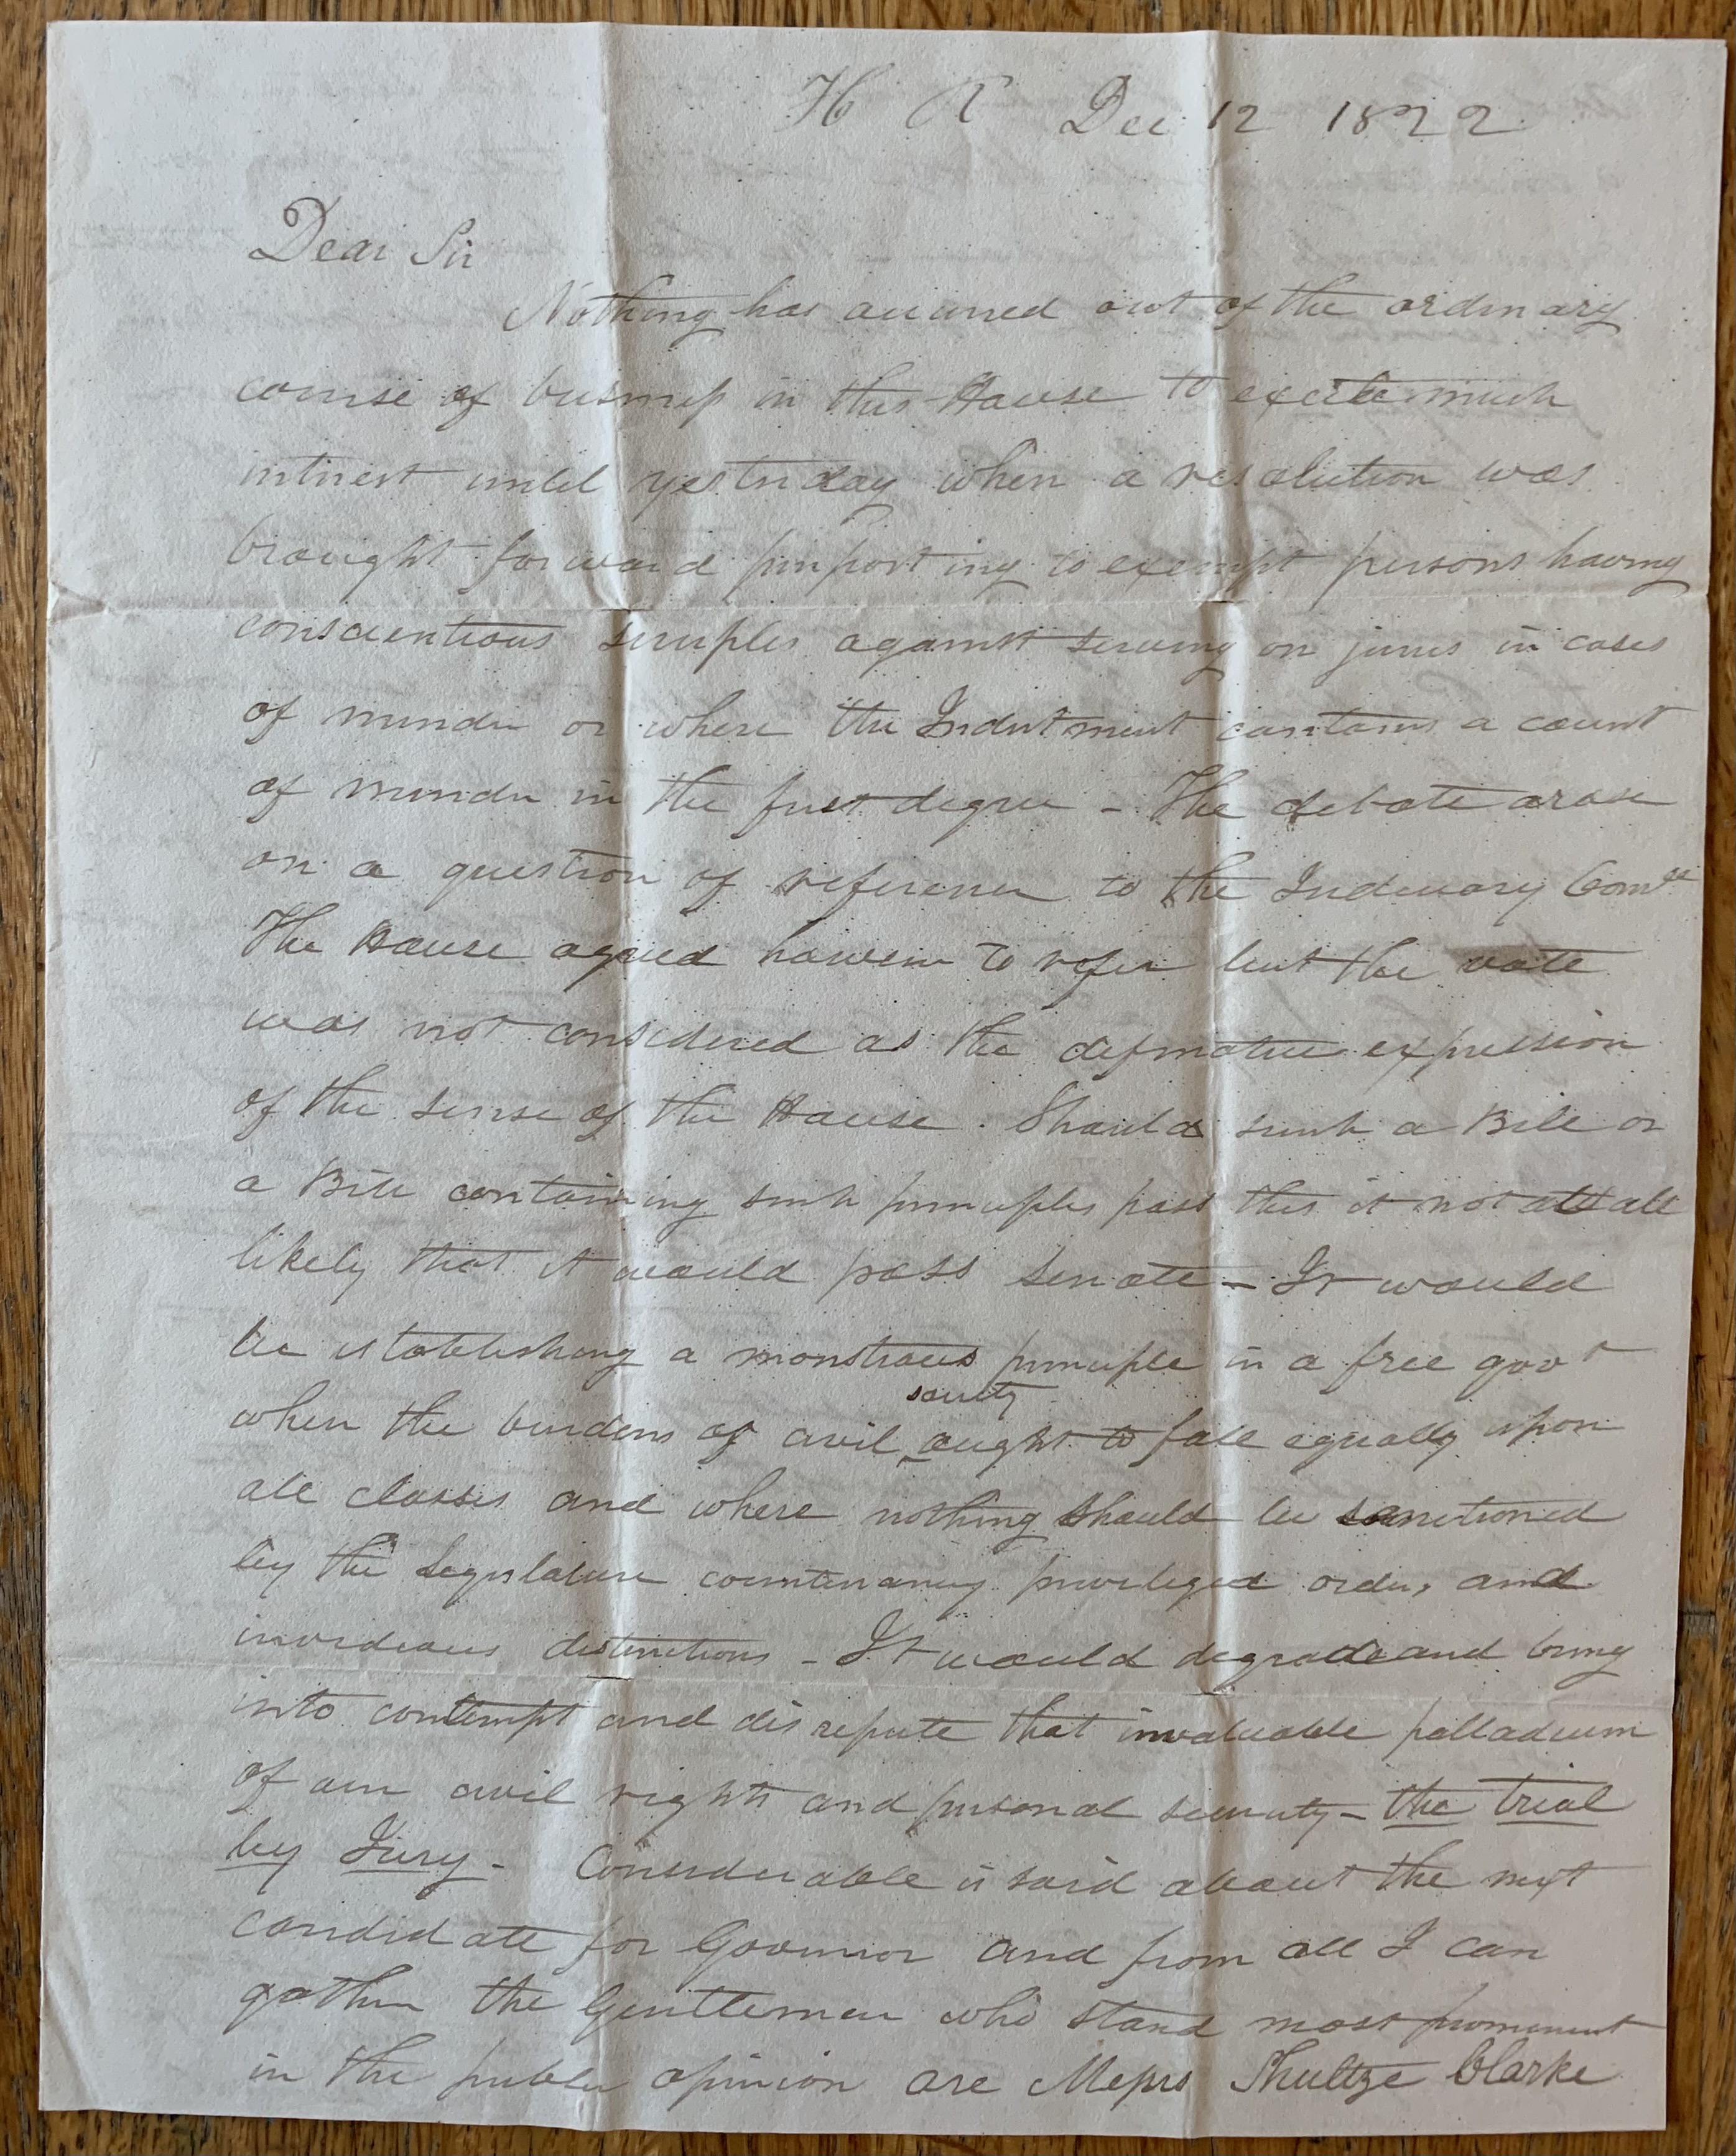 H R Dec 12 1822
Dear Sir
Nothing has occurred out of the ordinary
course of business in this House to excite much
interest until yesterday when a resolution was
brought forward purporting to exempt persons having
conscientious scruples against serving on juries in cases
of murder or where the Indictment contains a count
of murder in the first degree - The debate arose
on a question of reference to the Judiciary Comee
The House agreed however to refer but the vote
was not considered as the definative expression
of the sense of the House. Should such a Bill or
a Bill containing such principles pass this it not at all
likely that it would pass Senate - It would
be establishing a monstrous principle in a free govt
when the burdens of civil society ought to fall equally upon
all classes and where nothing should be sanctioned
by the Legislature countenancing privileged orders and
invidious distinctions - It would degrade and bring
into contempt and disrepute that invaluable palladium
of our civil rights and personal security - the trial
by Jury - Considerable is said about the next
candidate for Governor and from all I can
gather the Gentlemen who stand most prominent
in the public opinion are Messrs Shultze Clarke